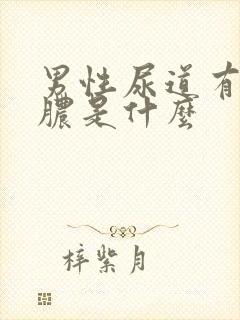 男性尿道有
膿是什麼
梓紫月